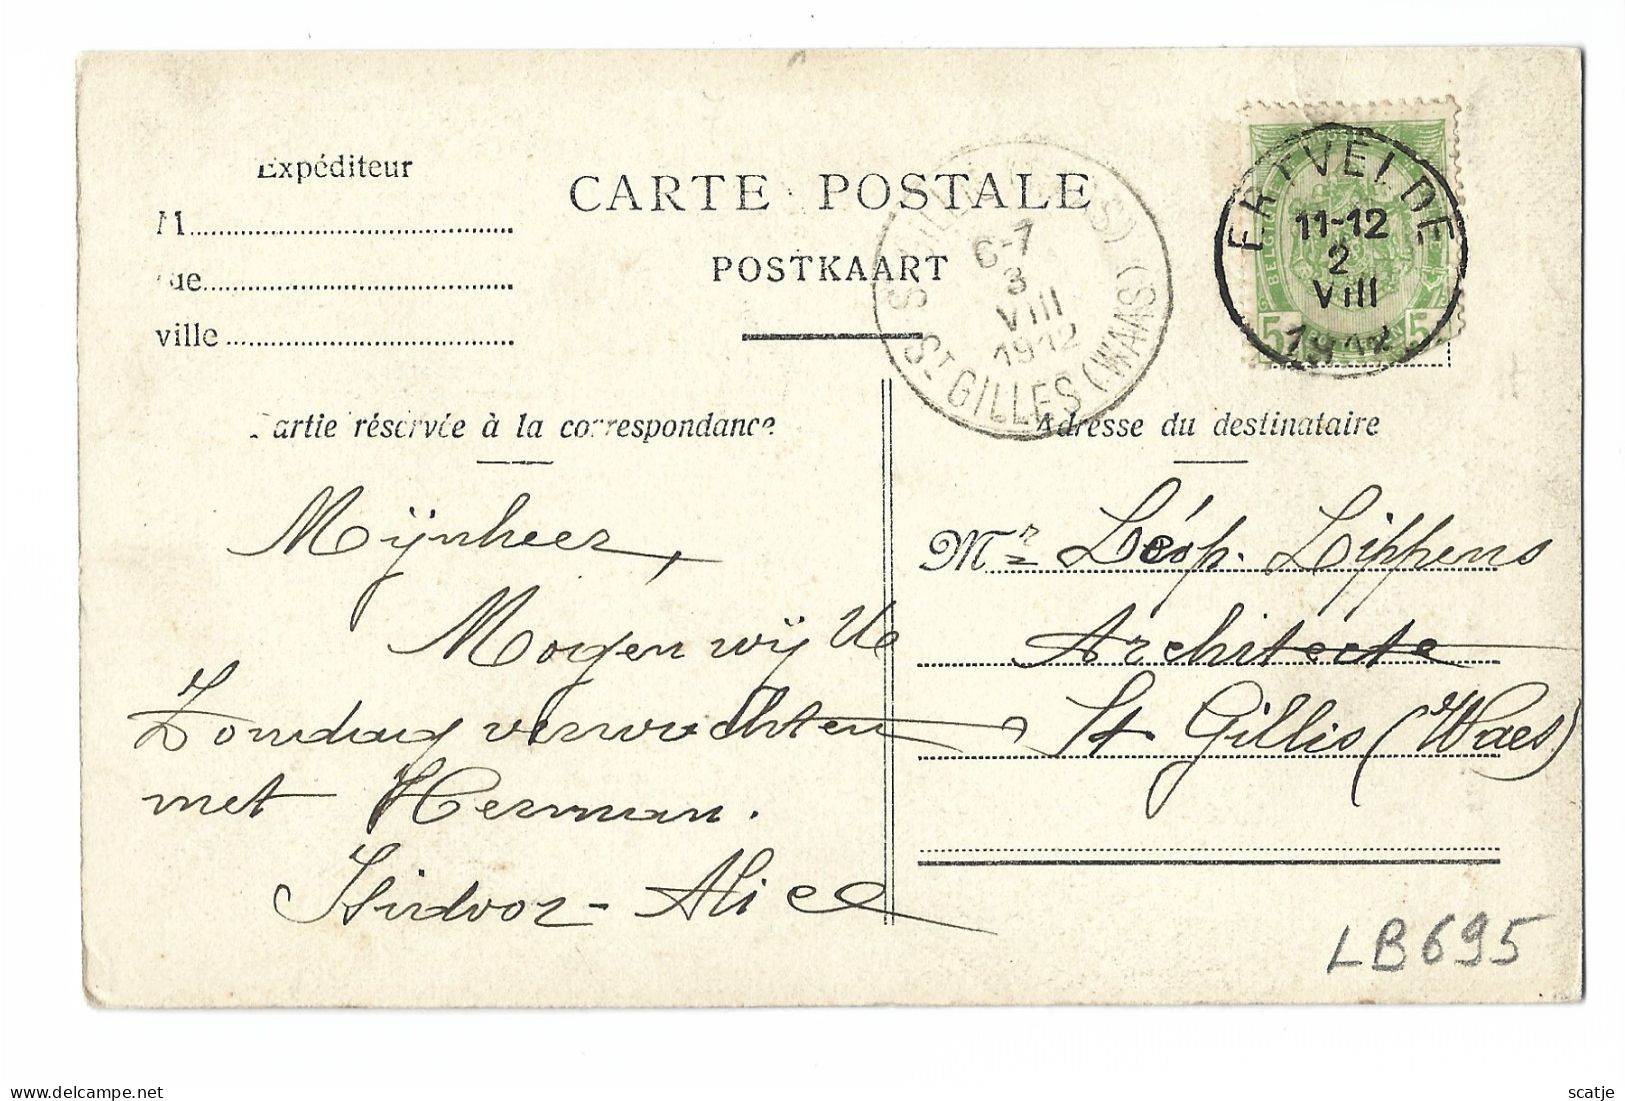 Expéditeur
M
rue
ville
CARTE POSTALE
POSTKAART
ERTVELDE
11-12
2
VIII
1912
BELGIQUE
5 5
ST GILLES (WAAS)
6-7
3
VIII
1912
Partie réservée à la correspondance
Adresse du destinataire
Mijnheer,
Morgen wij Ue
Zondag verwachten
met Herman.
Isidoor - Alice
Mr Léop. Lippens
Architecte
St Gillis (Waes)
LB695
scatje